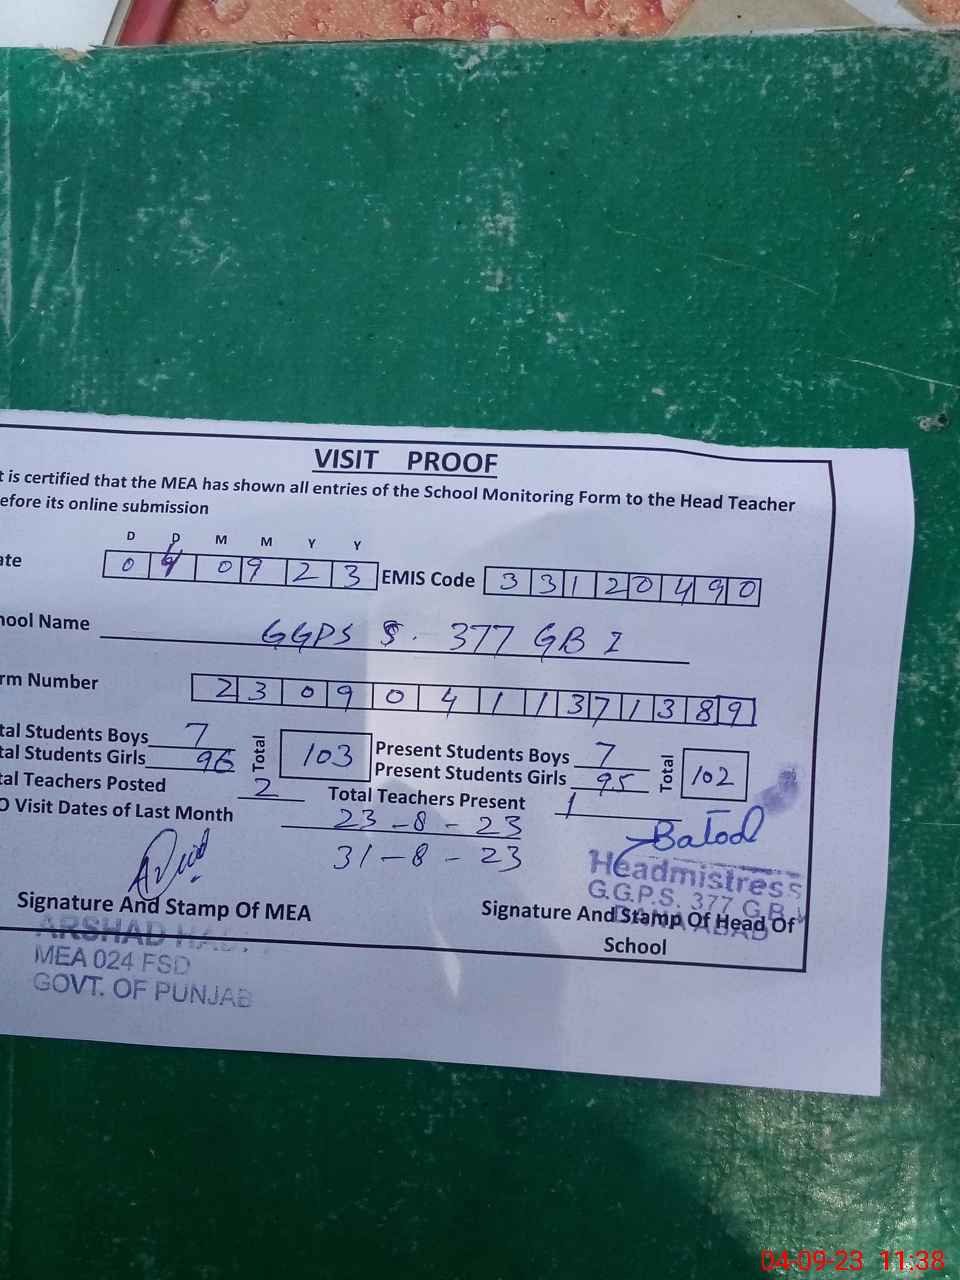 VISIT PROOF
t is certified that the MEA has shown all entries of the School Monitoring Form to the Head Teacher
efore its online submission
D D M M Y Y
ate 0 4 0 9 2 3 EMIS Code 3 3 1 2 0 4 9 0
hool Name GGPS S. 377 GB I
rm Number 2 3 0 9 0 4 1 1 3 7 1 3 8 9
tal Students Boys 7 Total 103 Present Students Boys 7 Total 102
tal Students Girls 96 Present Students Girls 95
tal Teachers Posted 2 Total Teachers Present 1
O Visit Dates of Last Month 23-8-23
31-8-23
Batool
Headmistress
G.G.P.S. 377 G.B
Signature And Stamp Of MEA Signature And Stamp Of Head Of
School
ARSHAD
MEA 024 FSD
GOVT. OF PUNJAB
04-09-23 11:38